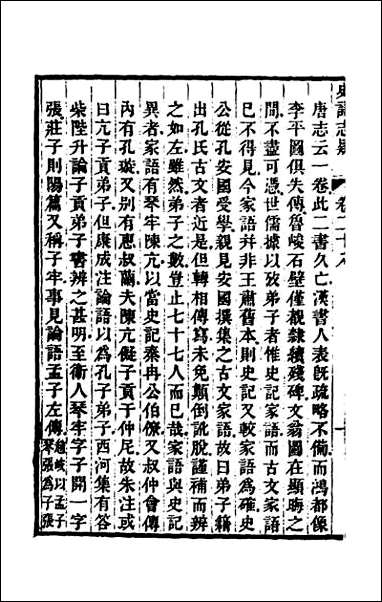 史記志疑 卷二十八
唐志云一卷此二書久亡漢書人表旣疏略不備而鴻都像
李平圖俱失傳魯峻石壁僅覩隸續殘碑文翁圖在顯晦之
間不盡可憑世儒據以攷弟子者惟史記家語而古文家語
已不得見今家語并非王肅舊本則史記又較家語為確史
公從孔安國受學親見安國撰集之古文家語故曰弟子籍
出孔氏古文者近是但轉相傳寫未免顛倒訛脫謹補而辨
之如左雖然弟子之數豈止七十七人而已哉家語與史記
異者家語有琴牢陳亢以當史記秦冉公伯僚又叔仲會傳
內有孔璇又别有惠叔蘭夫陳亢儗子貢于仲尼故朱注或
曰亢子貢弟子但康成注論語以為孔子弟子西河集有答
柴陛升論子貢弟子書辨之甚明至衛人琴牢字子開一字
張莊子則陽篇又稱子牢事見論語孟子左傳趙岐以孟子琴張為子張